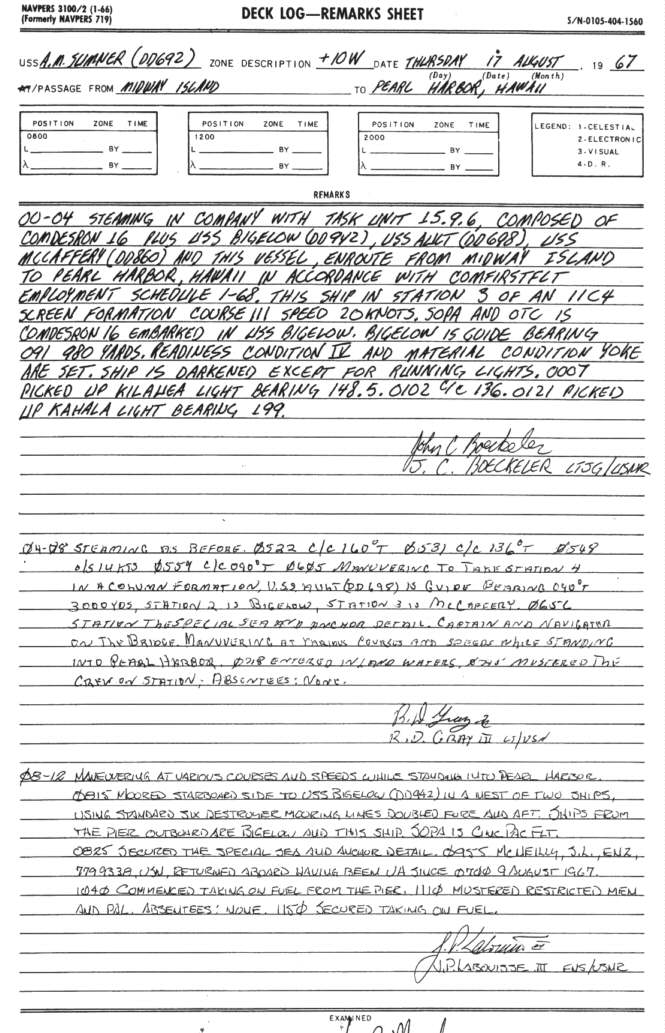 NAVPERS 3100/2 (1-66)
(Formerly NAVPERS 719)
DECK LOG—REMARKS SHEET
S/N-0105-404-1560
USS A.M. SUMNER (DD692) ZONE DESCRIPTION +10W DATE THURSDAY 17 AUGUST, 19 67
(Day) (Date) (Month)
AT/PASSAGE FROM MIDWAY ISLAND TO PEARL HARBOR, HAWAII
POSITION ZONE TIME
0800
L BY
λ BY
POSITION ZONE TIME
1200
L BY
λ BY
POSITION ZONE TIME
2000
L BY
λ BY
LEGEND: 1-CELESTIAL
2-ELECTRONIC
3-VISUAL
4-D. R.
REMARKS
00-04 STEAMING IN COMPANY WITH TASK UNIT 15.9.6, COMPOSED OF
COMDESRON 16 PLUS USS BIGELOW (DD942), USS AULT (DD698), USS
MCCAFFERY (DD860) AND THIS VESSEL, ENROUTE FROM MIDWAY ISLAND
TO PEARL HARBOR, HAWAII IN ACCORDANCE WITH COMFIRSTFLT
EMPLOYMENT SCHEDULE 1-68. THIS SHIP IN STATION 3 OF AN 11C4
SCREEN FORMATION COURSE 111 SPEED 20 KNOTS. SOPA AND OTC IS
COMDESRON 16 EMBARKED IN USS BIGELOW. BIGELOW IS GUIDE BEARING
091 980 YARDS. READINESS CONDITION IV AND MATERIAL CONDITION YOKE
ARE SET. SHIP IS DARKENED EXCEPT FOR RUNNING LIGHTS. 0007
PICKED UP KILAUEA LIGHT BEARING 148.5. 0102 C/C 136. 0121 PICKED
UP KAHALA LIGHT BEARING 199.
John C Boeckeler
J. C. BOECKELER LTJG/USNR
04-08 STEAMING AS BEFORE. 0522 C/C 160°T 0531 C/C 136°T 0549
C/S 14 KTS 0559 C/C 090°T 0605 MANUVERING TO TAKE STATION 4
IN A COLUMN FORMATION, U.S.S AULT (DD698) IS GUIDE BEARING 090°T
3000 YDS, STATION 2 IS BIGELOW, STATION 3 IS MCCAFFERY. 0656
STATION THE SPECIAL SEA AND ANCHOR DETAIL. CAPTAIN AND NAVIGATOR
ON THE BRIDGE. MANUVERING AT VARIOUS COURSES AND SPEEDS WHILE STANDING
INTO PEARL HARBOR. 0718 ENTERED INLAND WATERS, 0745 MUSTERED THE
CREW ON STATION; ABSENTEES: NONE.
R. D. Gray III
R. D. GRAY III LT/USN
08-12 MANEUVERING AT VARIOUS COURSES AND SPEEDS WHILE STANDING INTO PEARL HARBOR.
0815 MOORED STARBOARD SIDE TO USS BIGELOW (DD942) IN A NEST OF TWO SHIPS,
USING STANDARD SIX DESTROYER MOORING LINES DOUBLED FORE AND AFT. SHIPS FROM
THE PIER OUTBOARD ARE BIGELOW AND THIS SHIP. SOPA IS CINCPACFLT.
0825 SECURED THE SPECIAL SEA AND ANCHOR DETAIL. 0955 MCNEILLY, J.L., EN2,
7799338, USN, RETURNED ABOARD HAVING BEEN UA SINCE 0700 9 AUGUST 1967.
1040 COMMENCED TAKING ON FUEL FROM THE PIER. 1110 MUSTERED RESTRICTED MEN
AND PAL. ABSENTEES: NONE. 1150 SECURED TAKING ON FUEL.
J.P. Labouisse III
J.P. LABOUISSE III ENS/USNR
EXAMINED